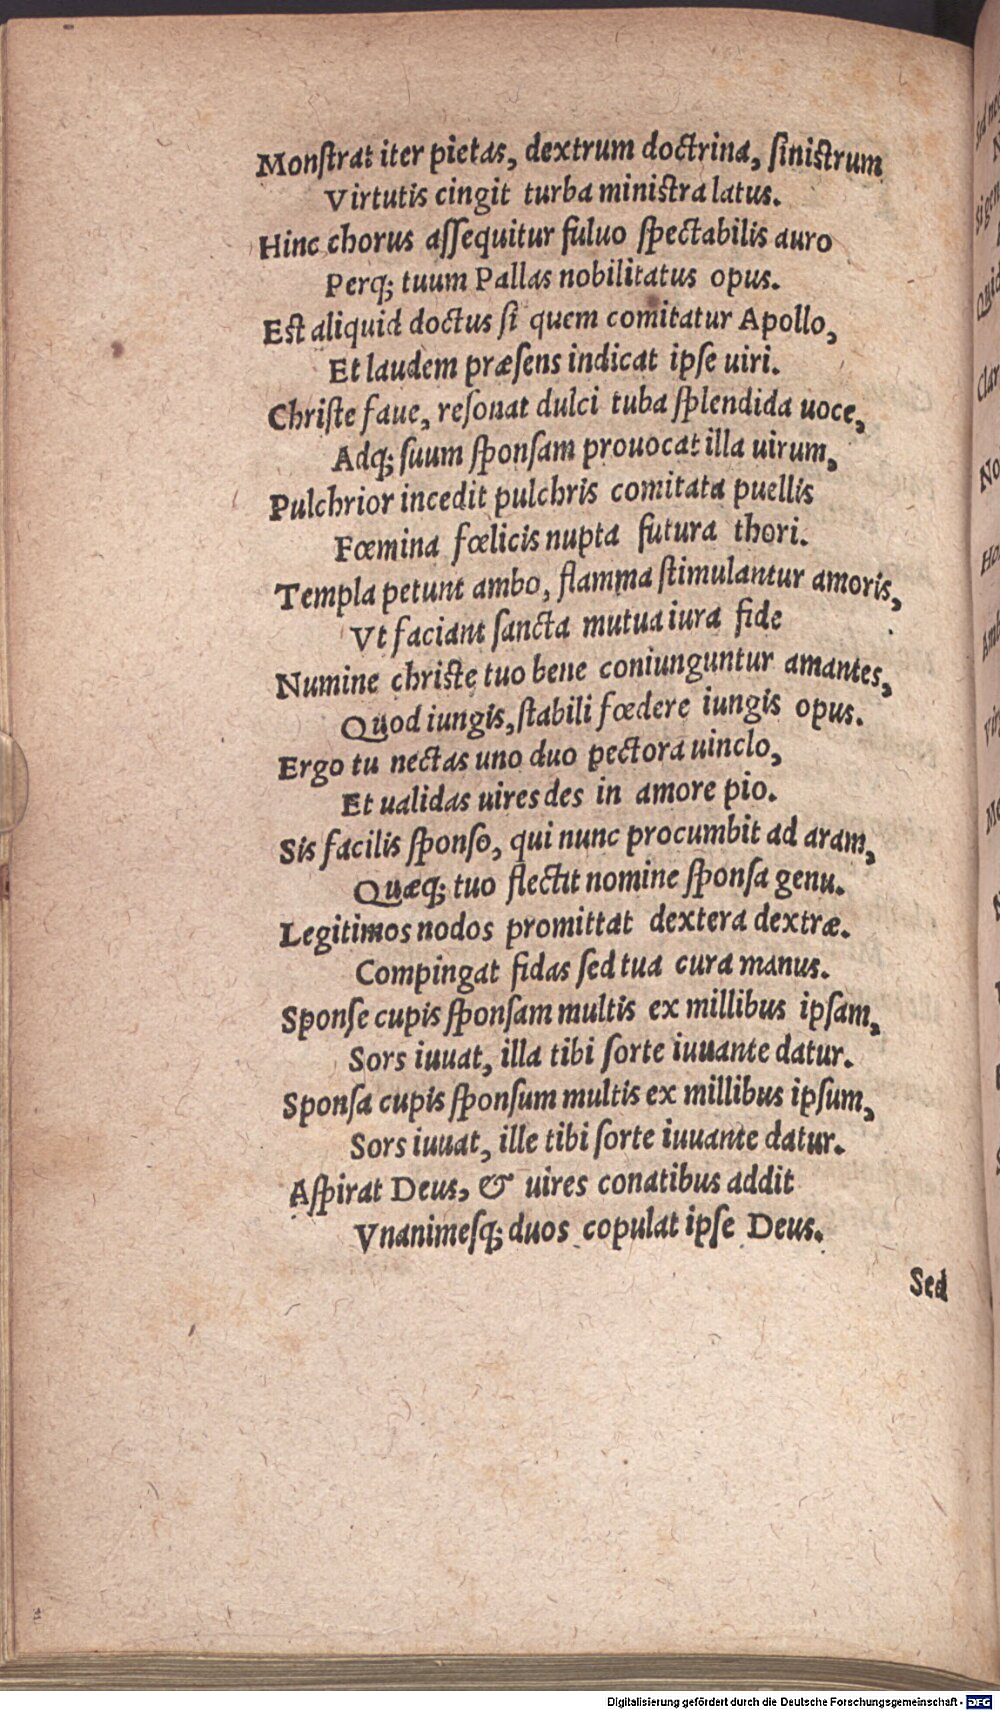 Monſtrat iter pietas, dextrum doctrina, ſiniſtrum
Virtutis cingit turba miniſtra latus.
Hinc chorus aſſequitur fuluo ſpectabilis auro
Perq; tuum Pallas nobilitatus opus.
Eſt aliquid doctus ſi quem comitatur Apollo,
Et laudem præſens indicat ipſe uiri.
Chriſte faue, reſonat dulci tuba ſplendida uoce,
Adq; ſuum ſponſam prouocat illa uirum,
Pulchrior incedit pulchris comitata puellis
Fœmina fœlicis nupta futura thori.
Templa petunt ambo, flamma ſtimulantur amoris,
Vt faciant ſancta mutua iura fide
Numine chriſte tuo bene coniunguntur amantes,
Quod iungis, ſtabili fœdere iungis opus.
Ergo tu nectas uno duo pectora uinclo,
Et ualidas uires des in amore pio.
Sis facilis ſponſo, qui nunc procumbit ad aram,
Quæq; tuo flectit nomine ſponſa genu.
Legitimos nodos promittat dextera dextræ.
Compingat fidas ſed tua cura manus.
Sponſe cupis ſponſam multis ex millibus ipſam,
Sors iuuat, illa tibi ſorte iuuante datur.
Sponſa cupis ſponſum multis ex millibus ipſum,
Sors iuuat, ille tibi ſorte iuuante datur.
Aſpirat Deus, & uires conatibus addit
Vnanimeſq; duos copulat ipſe Deus.
Sed
Digitalisierung gefördert durch die Deutsche Forschungsgemeinschaft - DFG